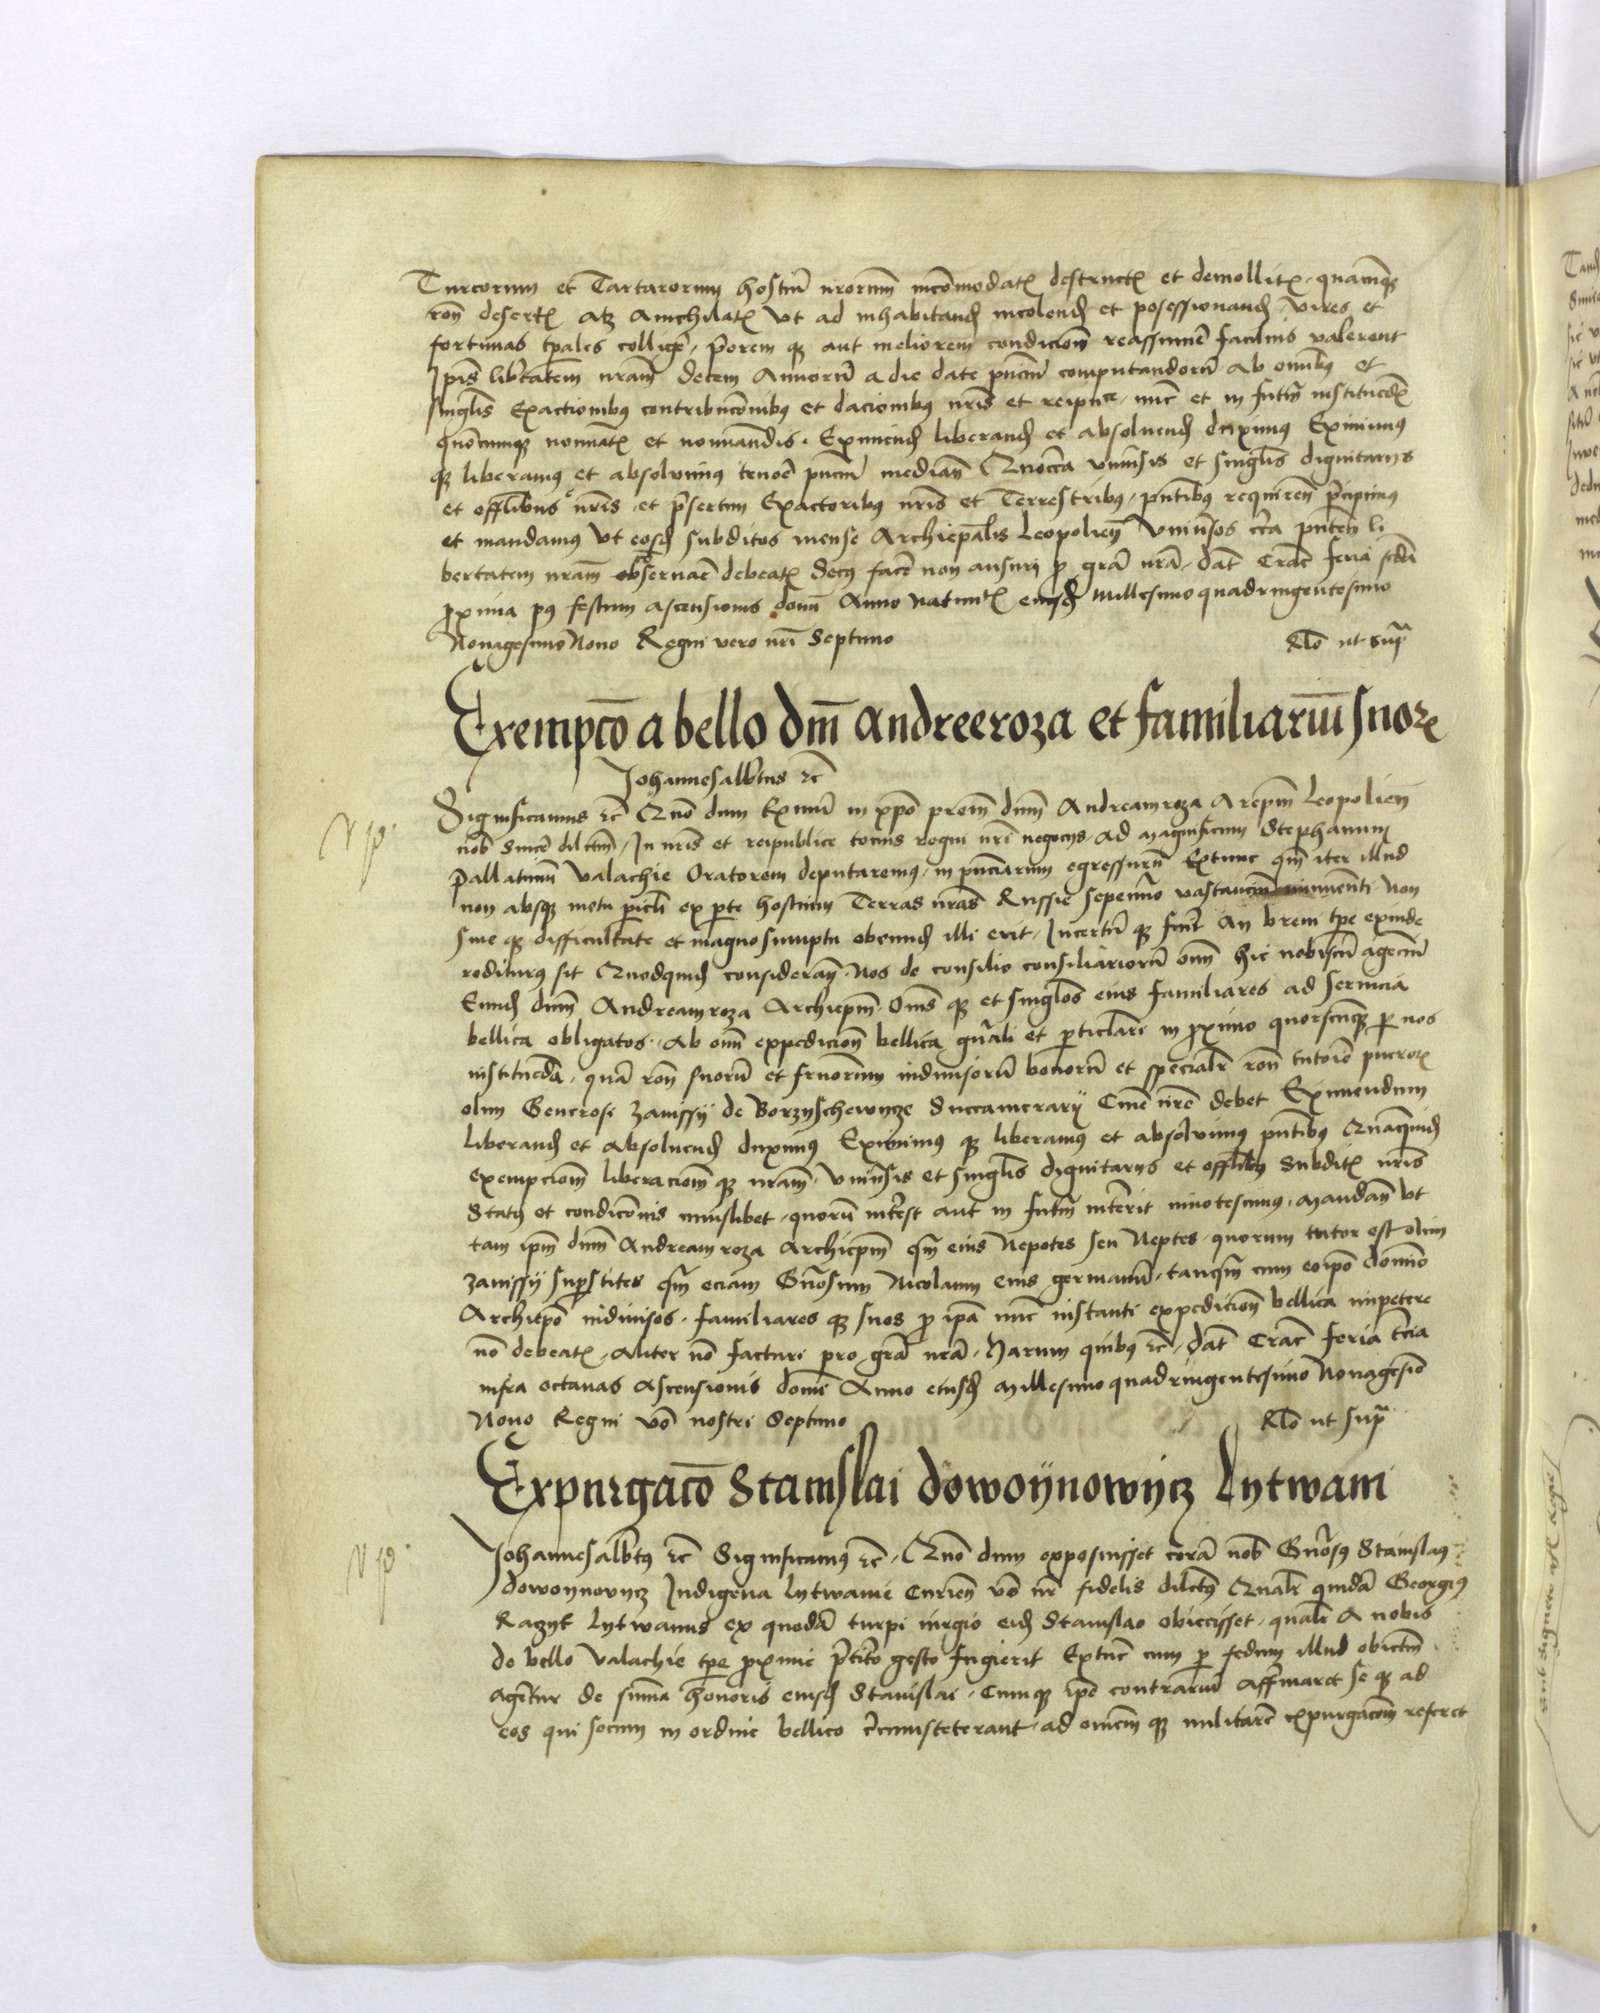 Turcorum et Tartarorum hostiu nrorum incomodatꝫ destructꝫ et demollitꝫ quamqꝫ
ron desertꝫ atqꝫ anichilatꝫ ut ad inhabitandꝫ incolendꝫ et posessionandꝫ vires et
fortunas tpales collige priorem qꝫ aut meliorem condicionem reassumere facilius valerent
Ipis libertatem nram decem Annorum a die date pncium computandoru Ab omnibꝰ et
singlis Exactionibꝰ contribucionibꝰ et dacionibꝰ nris et reipuce nunc et in futurum instituedis
quocumqꝫ nominatꝫ et nominandis Eximendꝫ liberandꝫ et absoluendꝫ duximus Eximimꝰ
qꝫ liberamꝰ et absoluimus tenore pncium median Quocca vniuersis et singlis dignitarys
et offlibus nris et presertim Exactoribus nris et Terrestribus pntibꝰ requirendꝫ precipimus
et mandamus ut eosdꝫ subditos mense Archiepalis Leopolien Vniuersos circa pntem li
bertatem nram obseruare debeatꝫ Secꝰ facere non ausuri p gra nra dat Crac feria scda
proxima pꝰ festum ascensionis domini Anno Natiuitꝫ eiusdꝫ Millesimo quadringentesimo
Nonagesimo Nono Regni vero nri Septimo Rlo ut supra
Exempcio a bello dni Andree roza et familiarium suorꝫ
Johannes albertus etc
Significamus etc Quo dum Exmium in xpo prem dnm Andream roza Arepm Leopolien
nob sincere dilctum In nris et reipublice tocius regni nri negocys ad magnificum Stephanum
Pallatinum Valachie Oratorem deputaremus in pnciarum egressurum Extunc qm iter illud
non absqꝫ metu piculi ex pte hostium Terras nras Russie sepenumero vastancium Non
sine qꝫ difficultate et magno sumptu obeundꝫ illi erit Incertum qꝫ fuerit An breui tpe exinde
rediturꝰ sit Quodquidꝫ consideran Nos de consilio consiliarioru omnium hic nobiscum agencium
Eundꝫ dnm Andream roza Archiepm Omnes qꝫ et singlos eius familiares ad seruicia
bellica obligatos Ab omni expedicione bellica gnrali et pticlari in proximo quorsucumqꝫ p nos
instituenda quam ron suoru et fruorum indiuisoru bonoru et specialr ron tutorie puerorꝫ
olim Generosi Zavissy de Borzyschewycze Succamerary Cme nre debet Eximendum
liberandꝫ et absoluendꝫ duximus Eximimus qꝫ liberamꝰ et absoluimus pntibꝰ Quamquidꝫ
exempcionem liberacionem qꝫ nram Vniuersis et singlis dignitarys et offlibꝰ Subditꝫ nris
Statꝰ et condicionis cuiuslibet quoru interest aut in futurum intererit innotescimus Mandan Vt
tam ipm dnm Andream roza Archiepm qm eius Nepotes seu Neptes quorum tutor est olim
Zavissy superstites qm eciam Gnosum Nicolaum eius germanu tanqm cum eo ipo domino
Archiepo indiuisos familiares qꝫ suos p ipa nunc instanti expedicione bellica impetere
no debeatꝫ Aliter no facturi pro gra nra Harum quibꝰ etc dat Crac feria tercia
infra octauas Ascensionis domini Anno eiusdꝫ Millesimo quadringentesimo Nonagesimo
Nono Regni vero nostri Septimo Rlo ut supra
Expurgacio Stanislai dowoynowycz Lytwani
Johannes albertꝰ etc Significamꝰ etc Quo dum exposuisset cora nob Gnosꝰ Stanislaꝰ
dowoynowycz Indigena Lytwanie Curien vero nr fidelis dilctꝰ Qualr quida Georgiꝰ
Lytwanus ex quoda turpi iurgio eidꝫ Stanislao obiecisset qualr A nobis
de bello Valachie tpe proxime pretito gesto fugierit Extunc cum p fedum illud obiectum
agetur de summa honoris eiusdꝫ Stanislai Cumqꝫ ipe contrarium affirmaret se qꝫ ad
eos qui secum in ordine bellico circumsteterant ad omnem qꝫ militarem expurgacionem referet